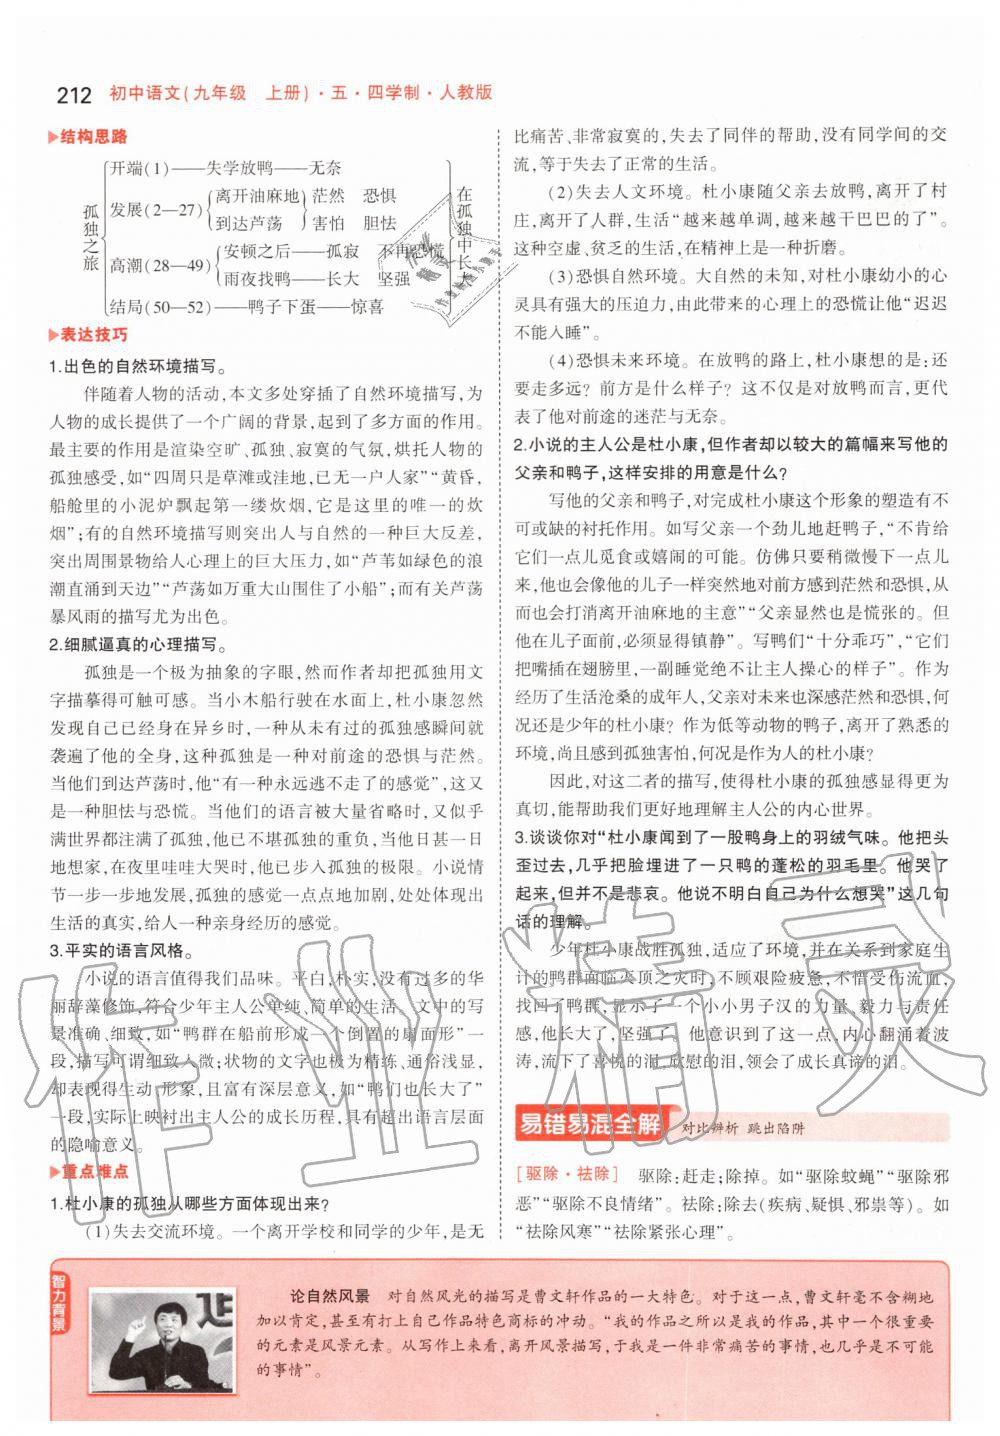 212 初中语文(九年级 上册)·五·四学制·人教版
结构思路
孤独之旅
开端(1)——失学放鸭——无奈
发展(2—27) 离开油麻地 茫然 恐惧
到达芦荡 害怕 胆怯
高潮(28—49) 安顿之后——孤寂 不再恐慌
雨夜找鸭——长大 坚强
结局(50—52)——鸭子下蛋——惊喜
在孤独中长大
表达技巧
1.出色的自然环境描写。
伴随着人物的活动,本文多处穿插了自然环境描写,为
人物的成长提供了一个广阔的背景,起到了多方面的作用。
最主要的作用是渲染空旷、孤独、寂寞的气氛,烘托人物的
孤独感受,如“四周只是草滩或洼地,已无一户人家”“黄昏,
船舱里的小泥炉飘起第一缕炊烟,它是这里的唯一的炊
烟”;有的自然环境描写则突出人与自然的一种巨大反差,
突出周围景物给人心理上的巨大压力,如“芦苇如绿色的浪
潮直涌到天边”“芦荡如万重大山围住了小船”;而有关芦荡
暴风雨的描写尤为出色。
2.细腻逼真的心理描写。
孤独是一个极为抽象的字眼,然而作者却把孤独用文
字描摹得可触可感。当小木船行驶在水面上,杜小康忽然
发现自己已经身在异乡时,一种从未有过的孤独感瞬间就
袭遍了他的全身,这种孤独是一种对前途的恐惧与茫然。
当他们到达芦荡时,他“有一种永远逃不走了的感觉”,这又
是一种胆怯与恐慌。当他们的语言被大量省略时,又似乎
满世界都注满了孤独,他已不堪孤独的重负,当他日甚一日
地想家,在夜里哇哇大哭时,他已步入孤独的极限。小说情
节一步一步地发展,孤独的感觉一点点地加剧,处处体现出
生活的真实,给人一种亲身经历的感觉。
3.平实的语言风格。
小说的语言值得我们品味。平白,朴实,没有过多的华
丽辞藻修饰,符合少年主人公单纯、简单的生活。文中的写
景准确,细致,如“鸭群在船前形成一个倒置的扇面形”一
段,描写可谓细致入微;状物的文字也极为精练、通俗浅显,
却表现得生动、形象,且富有深层意义,如“鸭们也长大了”
一段,实际上映衬出主人公的成长历程,具有超出语言层面
的隐喻意义。
重点难点
1.杜小康的孤独从哪些方面体现出来?
(1)失去交流环境。一个离开学校和同学的少年,是无
比痛苦、非常寂寞的,失去了同伴的帮助,没有同学间的交
流,等于失去了正常的生活。
(2)失去人文环境。杜小康随父亲去放鸭,离开了村
庄,离开了人群,生活“越来越单调,越来越干巴巴的了”。
这种空虚、贫乏的生活,在精神上是一种折磨。
(3)恐惧自然环境。大自然的未知,对杜小康幼小的心
灵具有强大的压迫力,由此带来的心理上的恐慌让他“迟迟
不能入睡”。
(4)恐惧未来环境。在放鸭的路上,杜小康想的是:还
要走多远?前方是什么样子?这不仅是对放鸭而言,更代
表了他对前途的迷茫与无奈。
2.小说的主人公是杜小康,但作者却以较大的篇幅来写他的
父亲和鸭子,这样安排的用意是什么?
写他的父亲和鸭子,对完成杜小康这个形象的塑造有不
可或缺的衬托作用。如写父亲一个劲儿地赶鸭子,“不肯给
它们一点儿觅食或嬉闹的可能。仿佛只要稍微慢下一点儿
来,他也会像他的儿子一样突然地对前方感到茫然和恐惧,从
而也会打消离开油麻地的主意”“父亲显然也是慌张的。但
他在儿子面前,必须显得镇静”。写鸭们“十分乖巧”,“它们
把嘴插在翅膀里,一副睡觉绝不让主人操心的样子”。作为
经历了生活沧桑的成年人,父亲对未来也深感茫然和恐惧,何
况还是少年的杜小康?作为低等动物的鸭子,离开了熟悉的
环境,尚且感到孤独害怕,何况是作为人的杜小康?
因此,对这二者的描写,使得杜小康的孤独感显得更为
真切,能帮助我们更好地理解主人公的内心世界。
3.谈谈你对“杜小康闻到了一股鸭身上的羽绒气味。他把头
歪过去,几乎把脸埋进了一只鸭的蓬松的羽毛里。他哭了
起来,但并不是悲哀。他说不明白自己为什么想哭”这几句
话的理解。
少年杜小康战胜孤独,适应了环境,并在关系到家庭生
计的鸭群面临灭顶之灾时,不顾艰险疲惫,不惜受伤流血,
找回了鸭群,显示了一个小小男子汉的力量、毅力与责任
感,他长大了,坚强了。他意识到了这一点,内心翻涌着波
涛,流下了喜悦的泪,欣慰的泪,领会了成长真谛的泪。
易错易混全解 对比辨析 跳出陷阱
[驱除·祛除] 驱除:赶走;除掉。如“驱除蚊蝇”“驱除邪
恶”“驱除不良情绪”。祛除:除去(疾病、疑惧、邪祟等)。如
“祛除风寒”“祛除紧张心理”。
智力背景
论自然风景 对自然风光的描写是曹文轩作品的一大特色。对于这一点,曹文轩毫不含糊地
加以肯定,甚至有打上自己作品特色商标的冲动。“我的作品之所以是我的作品,其中一个很重要
的元素是风景元素。从写作上来看,离开风景描写,于我是一件非常痛苦的事情,也几乎是不可能
的事情”。
作业精灵